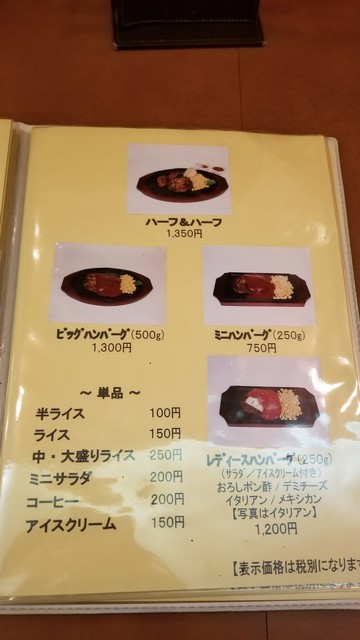 ハーフ＆ハーフ
1,350円
ビッグハンバーグ(500g)
1,300円
ミニハンバーグ(250g)
750円
～ 単品 ～
半ライス 100円
ライス 150円
中・大盛りライス 250円
ミニサラダ 200円
コーヒー 200円
アイスクリーム 150円
レディースハンバーグ(250g)
(サラダ／アイスクリーム付き)
おろしポン酢 / デミチーズ
イタリアン / メキシカン
【写真はイタリアン】
1,200円
【表示価格は税別になりま